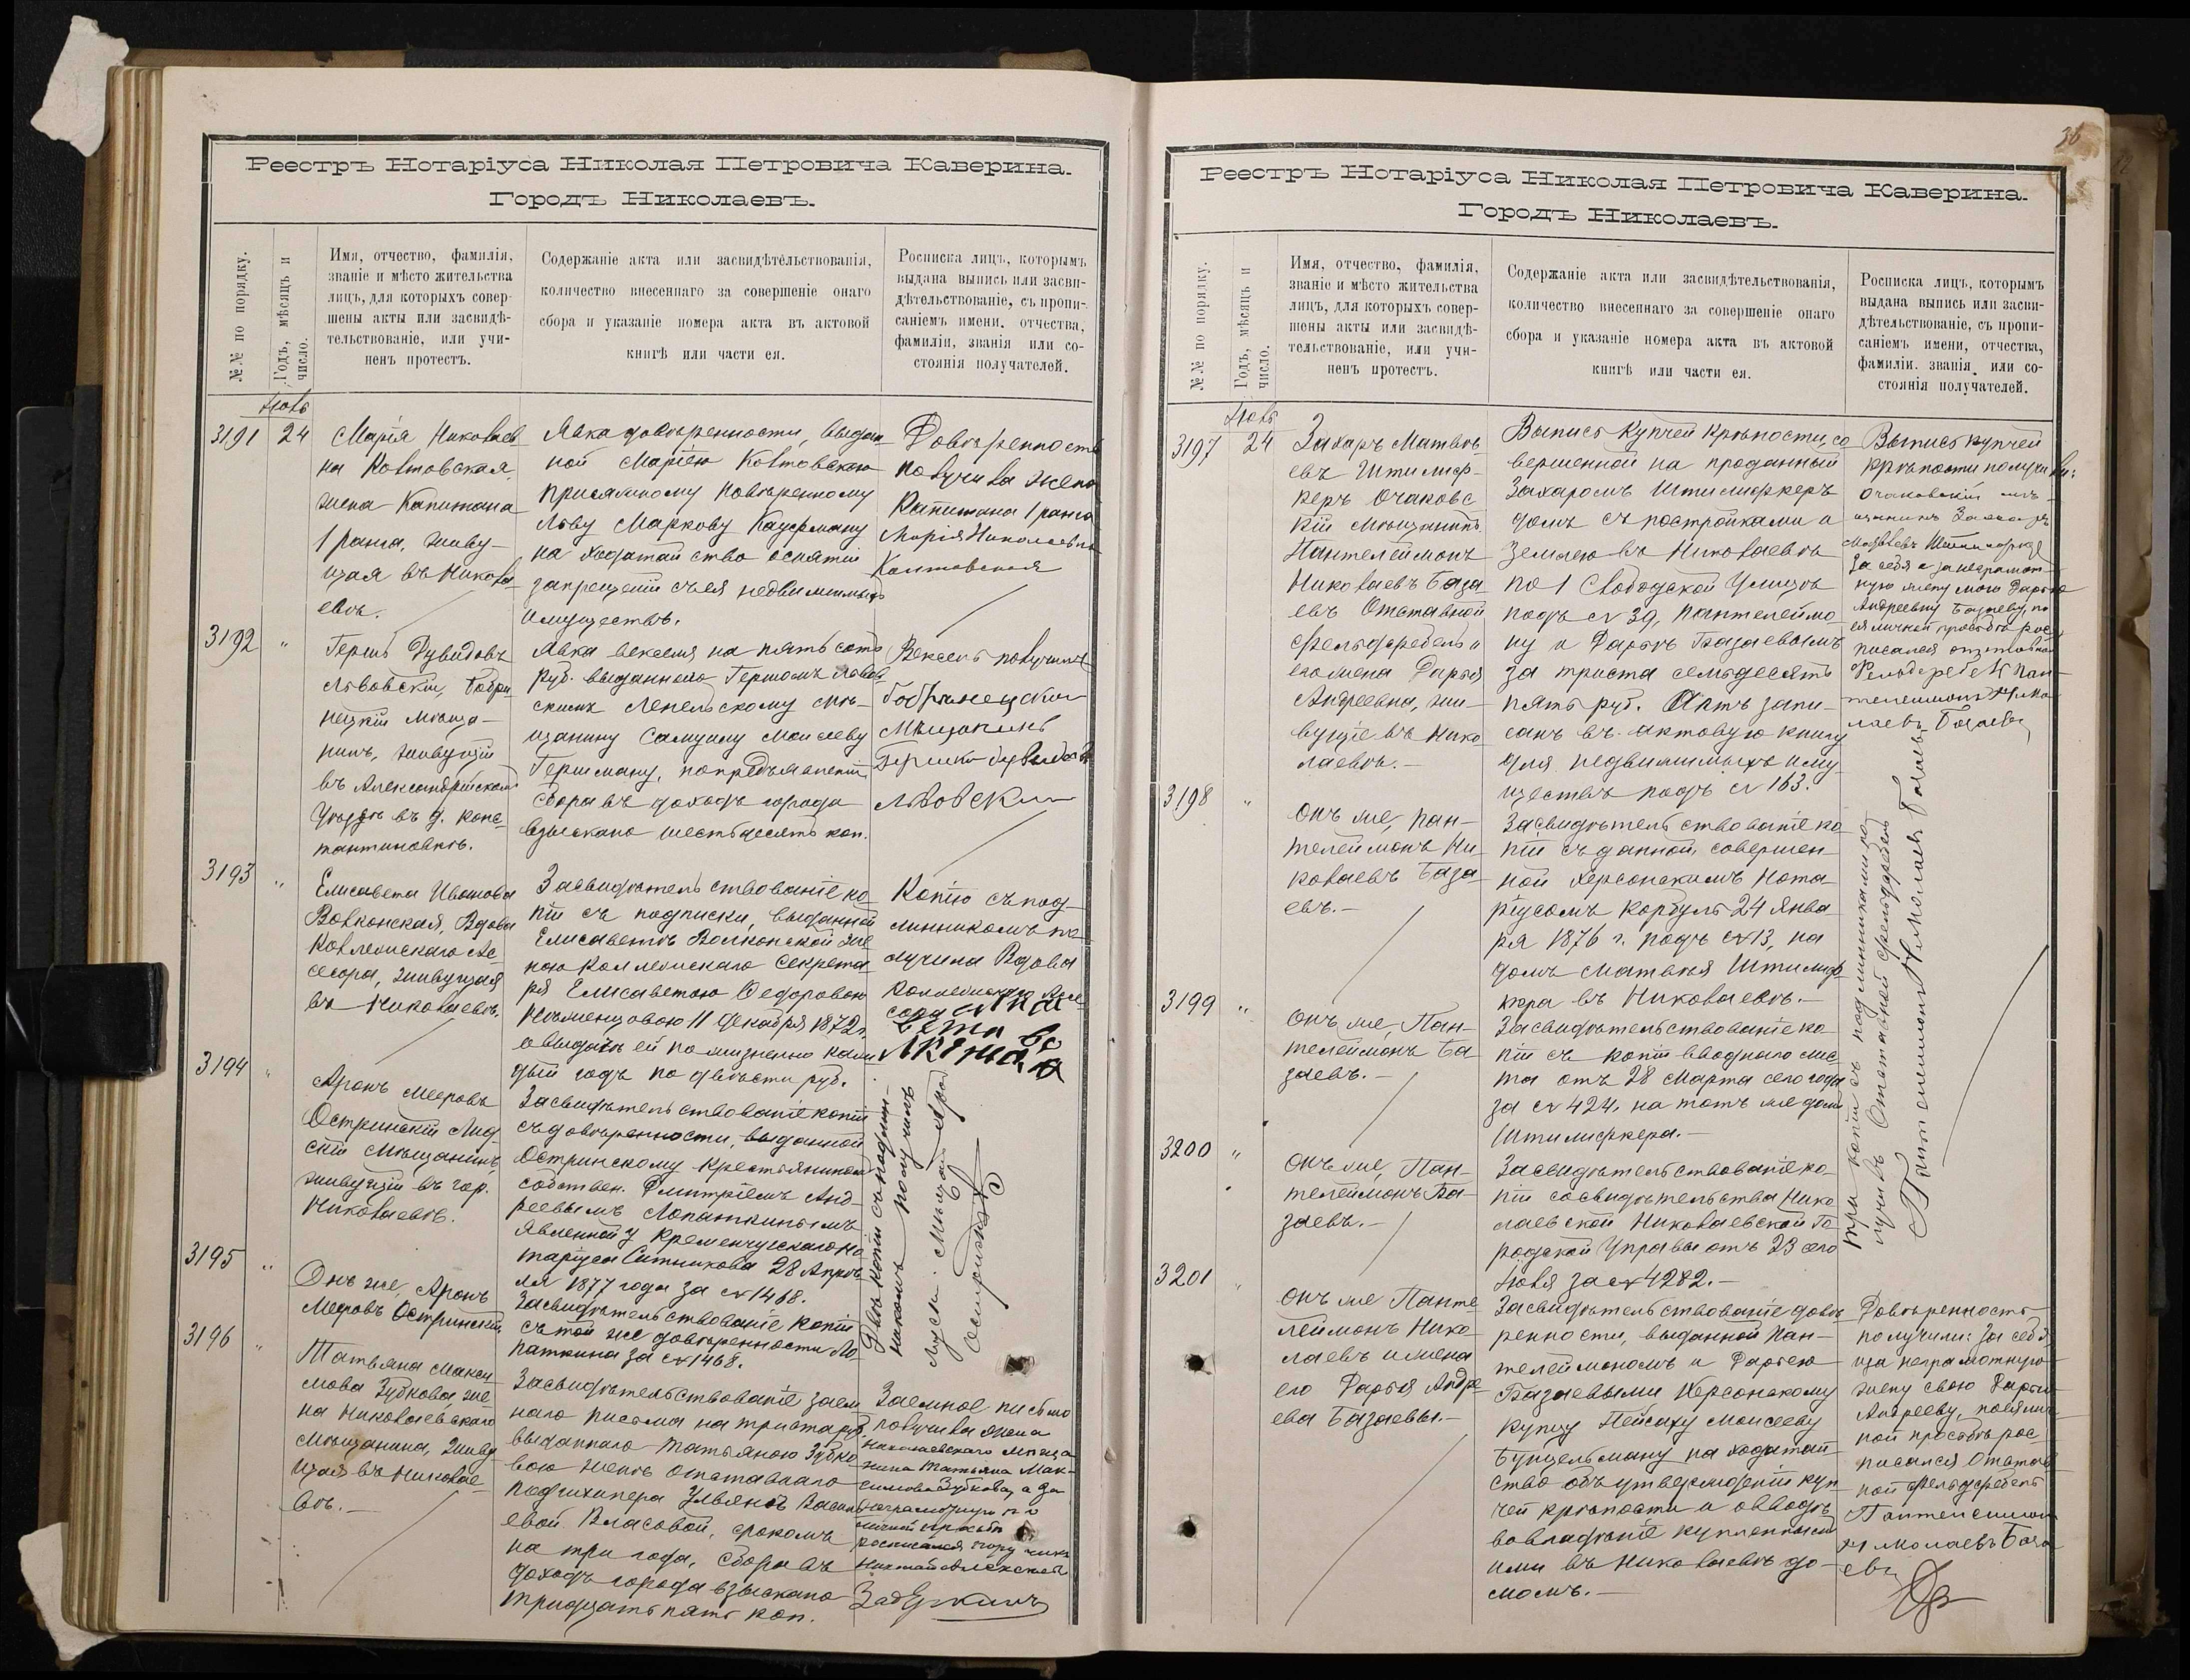 Реестръ Нотаріуса Николая Петровича Каверина.
Городъ Николаевъ.
№№ по порядку.
Годъ, мѣсяцъ и число.
Имя, отчество, фамилія,
званіе и мѣсто жительства
лицъ, для которыхъ совер-
шены акты или засвидѣ-
тельствованіе, или учи-
ненъ протестъ.
Содержаніе акта или засвидѣтельствованія,
количество внесеннаго за совершеніе онаго
сбора и указаніе номера акта въ актовой
книгѣ или части ея.
Росписка лицъ, которымъ
выдана выпись или засви-
дѣтельствованіе, съ пропи-
саніемъ имени, отчества,
фамиліи, званія или со-
стоянія получателей.
Іюль
3191
24
Марія Николаев
на Колтовская,
жена Капитана
1 ранга, живу-
щая въ Никола
евѣ.
Явка довѣренности, выдан
ной Маріею Колтовскою
присяжному повѣренному
Льву Маркову Кауфману
на ходатайство оснятіи
запрещеній съ ея недвижимыхъ
имуществъ.
Довѣренность
получила жена
Капитана 1 ранга
Марія Николаевна
Колтовская
3192
"
Гершъ Дувидовъ
Львовскій, Бобри
нецкій мѣща-
нинъ, живущій
въ Александрійскомъ
Уѣздѣ въ д. Конс-
тантиновкѣ.
Явка векселя на пятьсотъ
руб. выданнаго Гершомъ Львов
скимъ Лепельскому мѣ-
щанину Самуилу Моисееву
Гершману, по предъявленіи,
сбора въ доходъ города
взыскано шестьдесятъ коп.
Вексель получилъ
бобринецкій
Мѣщанинъ
Гершко дувидовъ
львовский
3193
"
Елисавета Иванова
Волконская, Вдова
Коллежскаго Ас-
сесора, живущая
въ Николаевѣ.
Засвидѣтельствованіе ко
піи съ подписки, выданной
Елисаветѣ Волконской же
ною Коллежскаго Секрета
ря Елисаветою Ѳедоровою
Нѣменцовою 11 Декабря 1872 г.
о выдачѣ ей пожизненно каж
дый годъ по двѣсти руб.
Копію съ под-
линникомъ по
лучила Вдова
Коллежскаго Ассе-
сора
3194
"
Аронъ Мееровъ
Остринскій Лид
скій Мѣщанинъ,
живущій въ гор.
Николаевѣ.
Засвидѣтельствованіе копіи
съ довѣренности, выданной
Остринскому крестьяниномъ
собствен. Дмитріемъ Анд-
реевымъ Лопаткинымъ
явленной у Кременчугскаго но
таріуса Ситникова 28 Апрѣ
ля 1877 года за № 1468.
Двѣ копіи съ подлин-
никомъ получилъ
3195
"
Онъ же, Аронъ
Мееровъ Остринскій
Засвидѣтельствованіе копіи
съ той же довѣренности Ло-
паткина за № 1468.
3196
"
Татьяна Макси
мова Зубкова, же
на Николаевскаго
мѣщанина, живу
щая въ Николае-
вѣ.-
Засвидѣтельствованіе заем
наго письма на триста руб.
выданнаго Татьяною Зубко
вою женѣ отставнаго
подшхипера Ульянѣ Василь
евой Власовой, срокомъ
на три года, сбора въ
доходъ города взыскано
тридцать пять коп.
Заемное письмо
получила жена
Николаевскаго мѣща
нина Татьяна Мак-
симова Зубкова, а за
неграмотную по
личной просьбѣ
росписался
Реестръ Нотаріуса Николая Петровича Каверина.
Городъ Николаевъ.
№№ по порядку.
Годъ, мѣсяцъ и число.
Имя, отчество, фамилія,
званіе и мѣсто жительства
лицъ, для которыхъ совер-
шены акты или засвидѣ-
тельствованіе, или учи-
ненъ протестъ.
Содержаніе акта или засвидѣтельствованія,
количество внесеннаго за совершеніе онаго
сбора и указаніе номера акта въ актовой
книгѣ или части ея.
Росписка лицъ, которымъ
выдана выпись или засви-
дѣтельствованіе, съ пропи-
саніемъ имени, отчества,
фамиліи, званія или со-
стоянія получателей.
Іюль
3197
24
Захаръ Матвѣ
евъ Штилиф-
керъ Очаковс
кій мѣщанинъ,
Пантелеймонъ
Николаевъ База
евъ Отставной
фельдфебель и
его жена Дарья
Андреевна, жи-
вущіе въ Нико
лаевѣ.-
Выпись купчей крѣпости, со
вершенной на проданный
Захаромъ Штилифкеръ
домъ съ постройками и
землею въ Николаевѣ
по 1 Слободской Улицѣ
подъ № 39, Пантелеймо
ну и Дарьѣ Базаевымъ
за триста семьдесятъ
пять руб. Актъ запи-
санъ въ актовую книгу
для недвижимыхъ иму
ществъ подъ № 163.
Выпись купчей
крѣпости получили:
очаковскій мѣ-
щанинъ Захаръ
За себя и за неграмот-
ную жену мою Дарью
Андреевну Базаеву, по
ея личной просьбѣ рос
писался отставной
Фельдфебель Пан-
телеймонъ Нико
лаевъ Базаевъ
3198
"
Онъ же, Пан-
телеймонъ Ни-
колаевъ База
евъ.-
Засвидѣтельствованіе ко
піи съ данной, совершен-
ной Херсонскимъ Нота-
ріусомъ Корбулъ 24 Янва
ря 1876 г. подъ № 13, на
домъ Матвѣя Штилиф-
кера въ Николаевѣ.-
Три копіи съ подлинниками по
лучилъ Отставной фельдфебель
3199
"
Онъ же, Пан-
телеймонъ Ба
заевъ.-
Засвидѣтельствованіе ко
піи съ копіи вводнаго лис
та отъ 28 Марта сего года
за № 424, на тотъ же домъ
Штилифкера.-
3200
"
Онъ же, Пан-
телеймонъ Ба-
заевъ.-
Засвидѣтельствованіе ко
піи со свидѣтельства Нико
лаевской Николаевской Го
родской Управы отъ 23 сего
Іюля за № 4282.-
3201
"
Онъ же Панте
леймонъ Нико-
лаевъ и жена
его Дарья Андре
ева Базаевы.-
Засвидѣтельствованіе довѣ
ренности, выданной Пан-
телеймономъ и Дарьею
Базаевыми Херсонскому
купцу Пейсаху Моисееву
Бунцельману на ходатай
ство объ утвержденіи куп
чей крѣпости и о вводѣ
во владѣніе купленнымъ
ими въ Николаевѣ до-
момъ.-
Довѣренность
получили: за себя,
и за неграмотную
жену свою Дарью
Андрееву, по ея лич
ной просьбѣ рос-
писался Отстав
ной фельдфебель
Пантелеимон
Николаевъ База
евъ